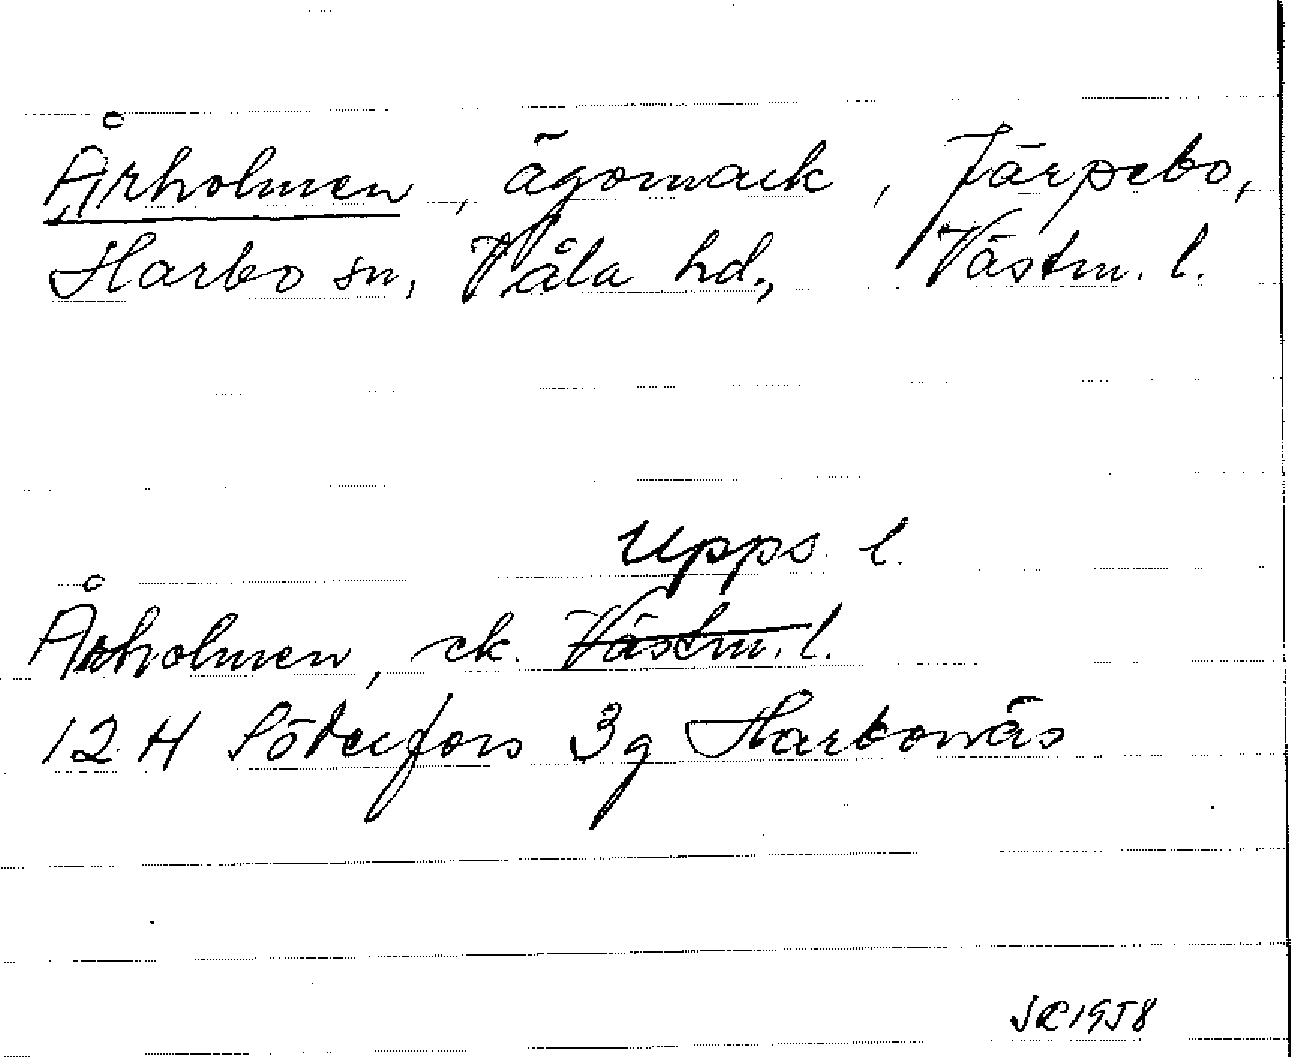 Årholmen, ägomark, Järpebo,
Harbo sn, Våla hd., Västm. l.
Upps. l.
Årholmen, ek. Västm. l.
12 H Söderfors 3g Harbonäs
1958